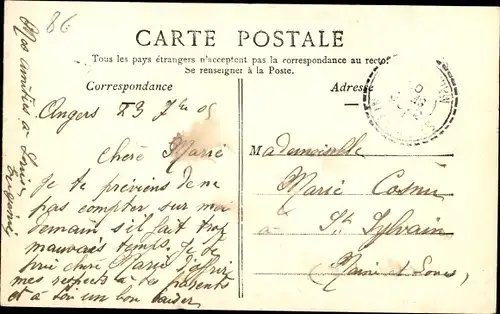 86
CARTE POSTALE
Tous les pays étrangers n'acceptent pas la correspondance au recto.
Se renseigner à la Poste.
Correspondance
Adresse
Angers 23 7bre 05
Chère Marie
Je te préviens de ne
pas compter sur moi
demain s'il fait trop
mauvais temps. Je te
prie chère Marie d'offrir
mes respects à tes parents
et à toi un bon baiser
Mes amitiés à Louis
Eugénie
Mademoiselle
Marie Cosnu
à St. Sylvain
Maine et Loire,